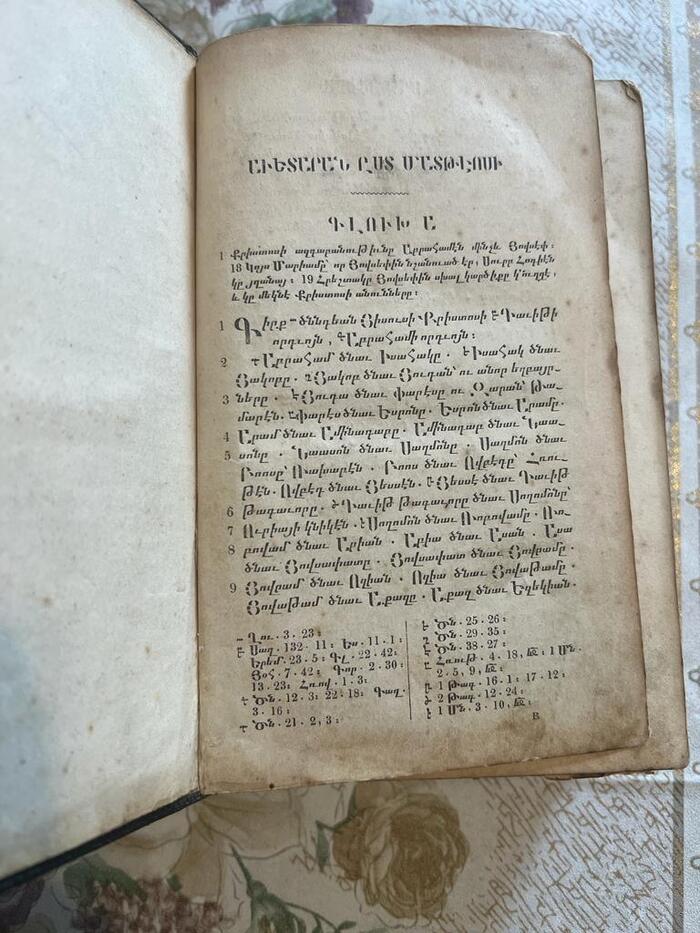 ԱՒԵՏԱՐԱՆ ԸՍՏ ՄԱՏԹԷՈՍԻ
ԳԼՈՒԽ Ա
1 Քրիստոսի ազգաբանութիւնը Աբրահամէն մինչեւ Յովսէփ։
18 Կոյս Մարիամը՝ որ Յովսեփին նշանուած էր, Սուրբ Հոգիէն
կը յղանայ։ 19 Հրեշտակը Յովսեփին սխալ կարծիքը կ՚ուղղէ,
եւ կը մեկնէ Քրիստոսի անունները։
1 Գիրք ծննդեան Յիսուսի Քրիստոսի Դաւիթի
որդւոյն, Աբրահամի որդւոյն։
2 Աբրահամ ծնաւ Իսահակը. Իսահակ ծնաւ
Յակոբը. Յակոբ ծնաւ Յուդան՝ ու անոր եղբայր–
3 ները. Յուդա ծնաւ Փարէսը ու Զարան՝ Թա–
մարէն. Փարէս ծնաւ Եսրոնը. Եսրոն ծնաւ Արամը.
4 Արամ ծնաւ Ամինադաբը. Ամինադաբ ծնաւ Նաա–
5 սոնը. Նաասոն ծնաւ Սաղմոնը. Սաղմոն ծնաւ
Բոոսը՝ Ռախաբէն. Բոոս ծնաւ Ովբէդը՝ Հռու–
թէն. Ովբէդ ծնաւ Յեսսէն. Յեսսէ ծնաւ Դաւիթ
6 թագաւորը. Դաւիթ թագաւորը ծնաւ Սողոմոնը՝
7 Ուրիայի կնիկէն. Սողոմոն ծնաւ Ռոբովամը. Ռո–
8 բովամ ծնաւ Աբիան. Աբիա ծնաւ Ասան. Ասա
ծնաւ Յովսափատը. Յովսափատ ծնաւ Յովրամը.
9 Յովրամ ծնաւ Ոզիան. Ոզիա ծնաւ Յովաթամը.
Յովաթամ ծնաւ Աքազը. Աքազ ծնաւ Եզեկիան.
Ղու. 3. 23։
Սաղ. 132. 11։ Ես. 11. 1։
Երեմ. 23. 5։ Գլ. 22. 42։
Յօհ. 7. 42։ Գոր. 2. 30։
13. 23։ Հռով. 1. 3։
Ծն. 12. 3։ 22. 18։ Գաղ.
3. 16։
Ծն. 21. 2, 3։
Ծն. 25. 26։
Ծն. 29. 35։
Ծն. 38. 27։
Հռութ. 4. 18, 1 Մն.
2. 5, 9,
1 Թագ. 16. 1։ 17. 12։
2 Թագ. 12. 24։
1 Մն. 3. 10,
B